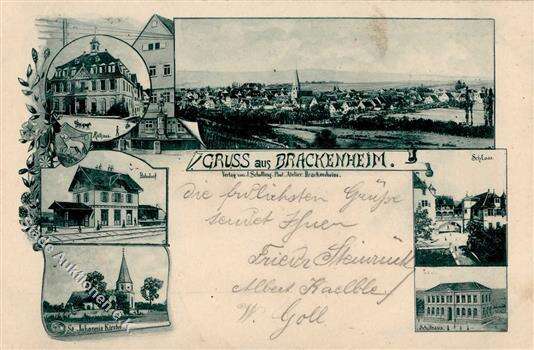 Rathaus
GRUSS aus BRACKENHEIM.
Verlag von J. Schelling, Phot. Atelier Brackenheim.
Bahnhof
Schloss
die frölichsten Grüße
sendet Ihnen
Friedr Steinrück
Albert Kaelble
W. Goll
St. Johannis Kirche
Schulhaus